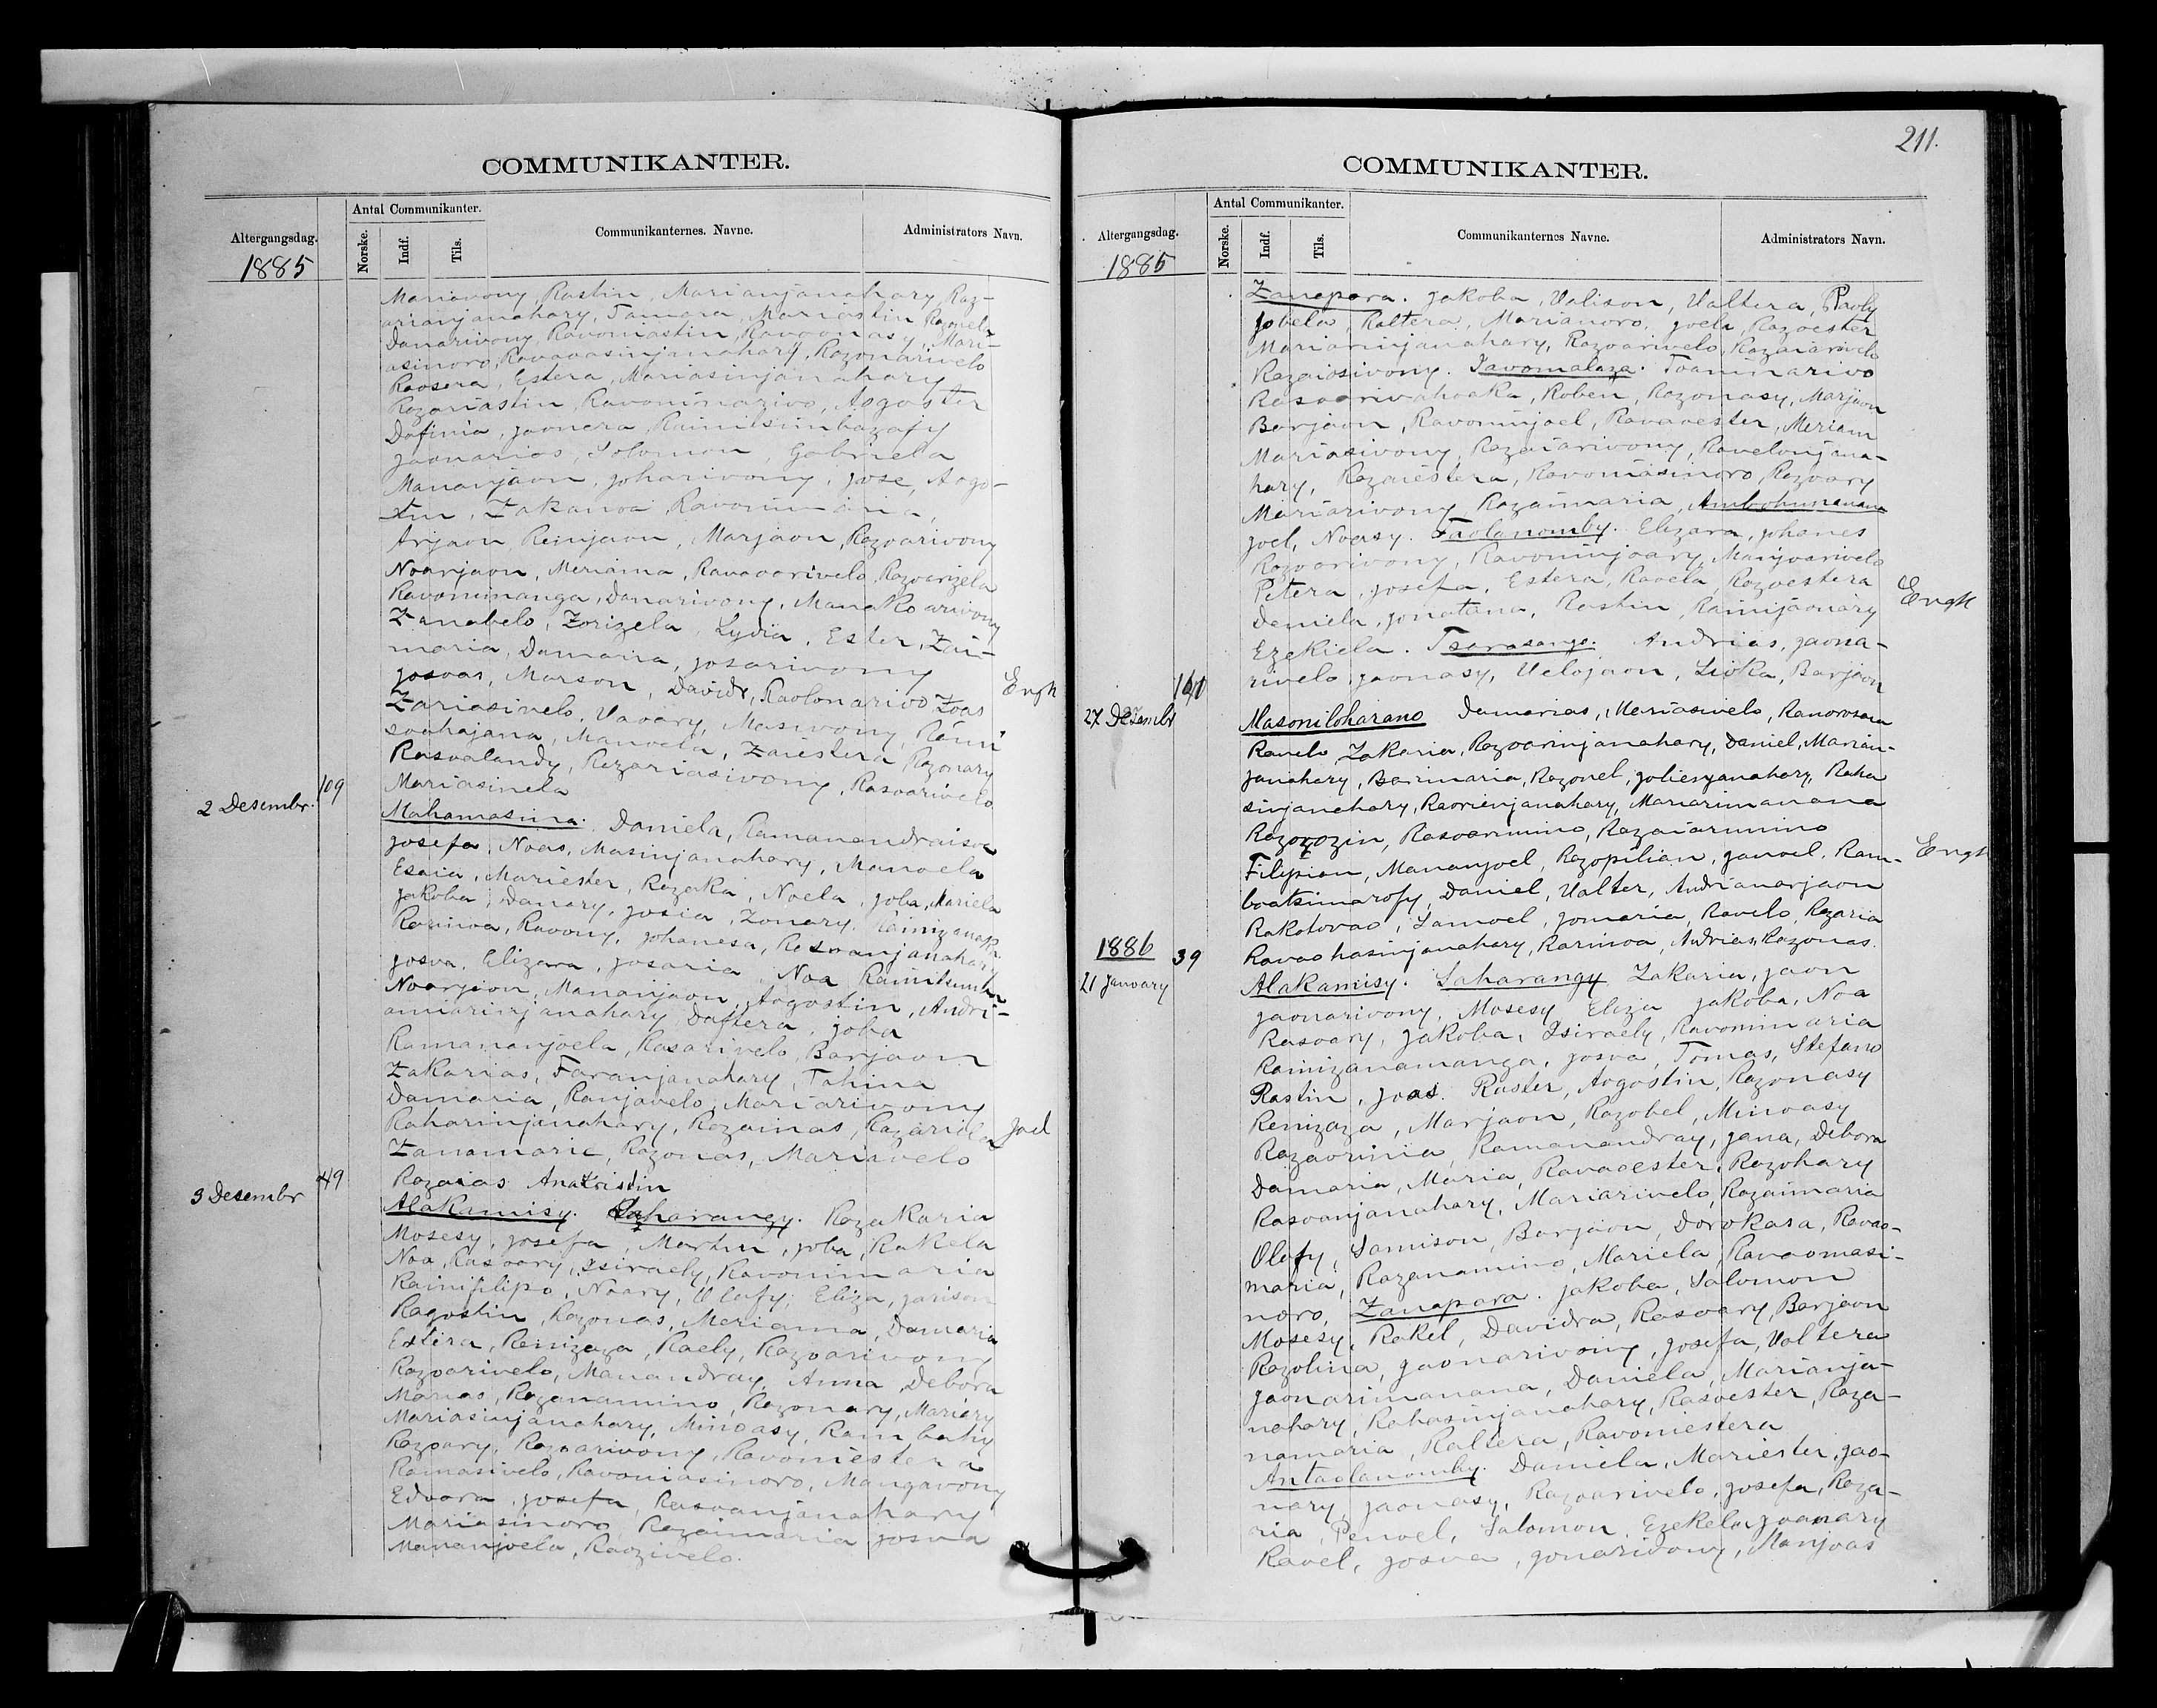 COMMUNIKANTER.
Altergangsdag.
1885
Antal Communikanter.
Norske.
Indf.
Tils.
Communikanternes. Navne.
Administrators Navn.
Mariavony, Rastin, Marianjanahary, Raz-
arianjanahary, Tamara, Mariastin Razoela
Danarivony, Ravoniastin, Ravaonasy, Mari-
asinoro, Ravaoasinjanahary, Razonarivelo
Raosera, Estera, Mariasinjanahary
Razariastin, Ravoninarivo, Aogoster
Dofinia, Jaonera, Rainitsimbazafy
Jaonarios, Solomon, Gabriela
Mananjaon, Joharivony, Jose, Aogo-
stin, Zakanoa, Ravonimaria,
Arjaon, Renijaon, Marjaon, Razoarivony
Noarjaon, Meriama, Ravaoarivelo, Razoarizela
Ravonimanga, Danarivony, Manakoarivony
Zanabelo, Zorizela, Lydia, Ester, Zai-
maria, Damaria, Josarivony
Josoas, Marson, Davida, Raolonarivo Zoas
Zariasivelo, Vavary, Masivony, Reni
soahajana, Manoela, Zaiestera Razonary
Rasoalandy, Rezariasivony, Rasoarivelo
Mariasinela
Engh
109
2 Desembr.
Mahamasina. Daniela, Ramanandraisoa
Josefa, Noas, Masinjanahary, Manoela
Esaia, Mariester, Rezaka, Noela, Joba, Mariela
Jakoba, Danary, Josia, Zonary, Rainizanaka
Rarinoa, Ravony, Johanesa, Rasoanjanahary
Josva, Elizara, Josaria, Noa Rainitsimba
Noarjaon, Mananjaon, Aogostin, Andri-
amiarinjanahary, Daftera, Joba
Ramananjoela, Rasarivelo, Barjaon
Zakarias, Faranjanahary, Tahina
Damaria, Ranjavelo, Mariarivony
Raharinjanahary, Rozainas, Razariela
Zanamaria, Razonas, Mariavelo
Razaias Anakristin
Joel
49
3 Desembr
Alakamisy. Saharangy. Razakaria
Mosesy, Josefa, Martin, Joba, Rakela
Noa, Rasoary, Isiraely, Ravonimaria
Rainifilipo, Noary, Olafy, Eliza, Jarison
Ragostin, Razonas, Meriama, Damaria
Estera, Renizaza, Raely, Razoarivony
Razoarivelo, Manandray, Anna, Debora
Marias, Razanamino, Razonary, Mariary
Mariasinjanahary, Minoasy, Rainibahy
Razoary, Razoarivony, Ravoniestera
Ramasivelo, Ravoniasinoro, Mangavony
Edvara, Josefa, Rasoanjanahary
Mariasinoro, Razaimaria Josva
Mananjoela, Raozivelo.
211.
COMMUNIKANTER.
Altergangsdag.
1885
Antal Communikanter.
Norske.
Indf.
Tils.
Communikanternes Navne.
Administrators Navn.
Zanapara. Jakoba, Valison, Valtera, Paoly
Jobela, Raltera, Marianoro. Joela, Razoester
Marianinjanahary, Razoarivelo, Razaiarivelo
Razaiasivony. Tavomalaza. Toaninarivo
Rasoarivahoaka, Roben, Razonasy, Marjaon
Barjaon, Ravoninjoel, Ravaoester, Meriam
Mariasivony, Razaiarivony, Ravelonjana-
hary, Razaiestera, Ravoniasinoro, Razoary
Mariarivony Razaimaria, Ambohimanana
Joel, Noasy. Taolanomby. Elizara, Johanes
Razoarivony, Ravoninjoary, Manjoarivelo
Petera, Josefa, Estera, Ravela Razoestera
Daniela, Jonatana, Rastin, Rainijaonary
Ezekiela. Tsarasango. Andrias, Jaona-
rivelo, Jaonasy, Velojaon, Lioka, Barjaon
Engh
101
27 Desembr
Masoniloharano Damarias, Meriasivelo, Ranorosoa
Ravelo Zakaria, Razoarinjanahary, Daniel, Marian-
janahary, Barimaria, Razonel, Joliesyanahary, Raha
sinjanahary, Raorienjanahary, Mariarimanana
Razorozin, Rasoarimino, Razaiarimino
Filipian, Mananjoel, Razopilian, Janoel, Ram-
boatsimarofy, Daniel, Valter, Andrianarjaon
Rakotovao, Samoel, Jomaria, Ravelo, Razaria
Ravaohasinjanahary, Rarinoa, Andrias, Razonas.
Engh
39
1886
21 Januory
Alakamisy. Saharangy Zakaria, Jaon
Jaonarivony, Mosesy Eliza Jakoba, Noa
Rasoary, Jakoba, Isiraely, Ravonimaria
Rainizanamanga, Josva, Tomas, Stefano
Rastin, Joas. Raster, Aogostin, Razonasy
Renizaza, Marjaon, Razobel, Minoasy
Razaorinia, Ramanandray, Jana, Debora
Damaria, Maria, Ravaoester, Razohary
Rasoanjanahary, Mariarivelo, Razaimaria
Olafy, Samison, Barjaon, Dorokasa, Ravao-
maria, Razanamino, Mariela, Ravaomasi-
noro, Zanapara. Jakoba, Salomon
Mosesy, Rakel, Davidra, Rasoary, Barjaon
Razolina, Jaonarivony, Josefa, Valtera
Jaonarimanana, Daniela, Marianja-
nahary, Rahasinjanahary, Rasoester, Raza-
namaria, Raltera, Ravoniestera
Antaolanomby. Daniela, Mariester, Jao-
nary, Jaonasy, Razoarivelo, Josefa, Raza-
ria, Penoel, Salomon, Ezekela, Joanary
Ravel, Josva, Jonarivony, Manjoas